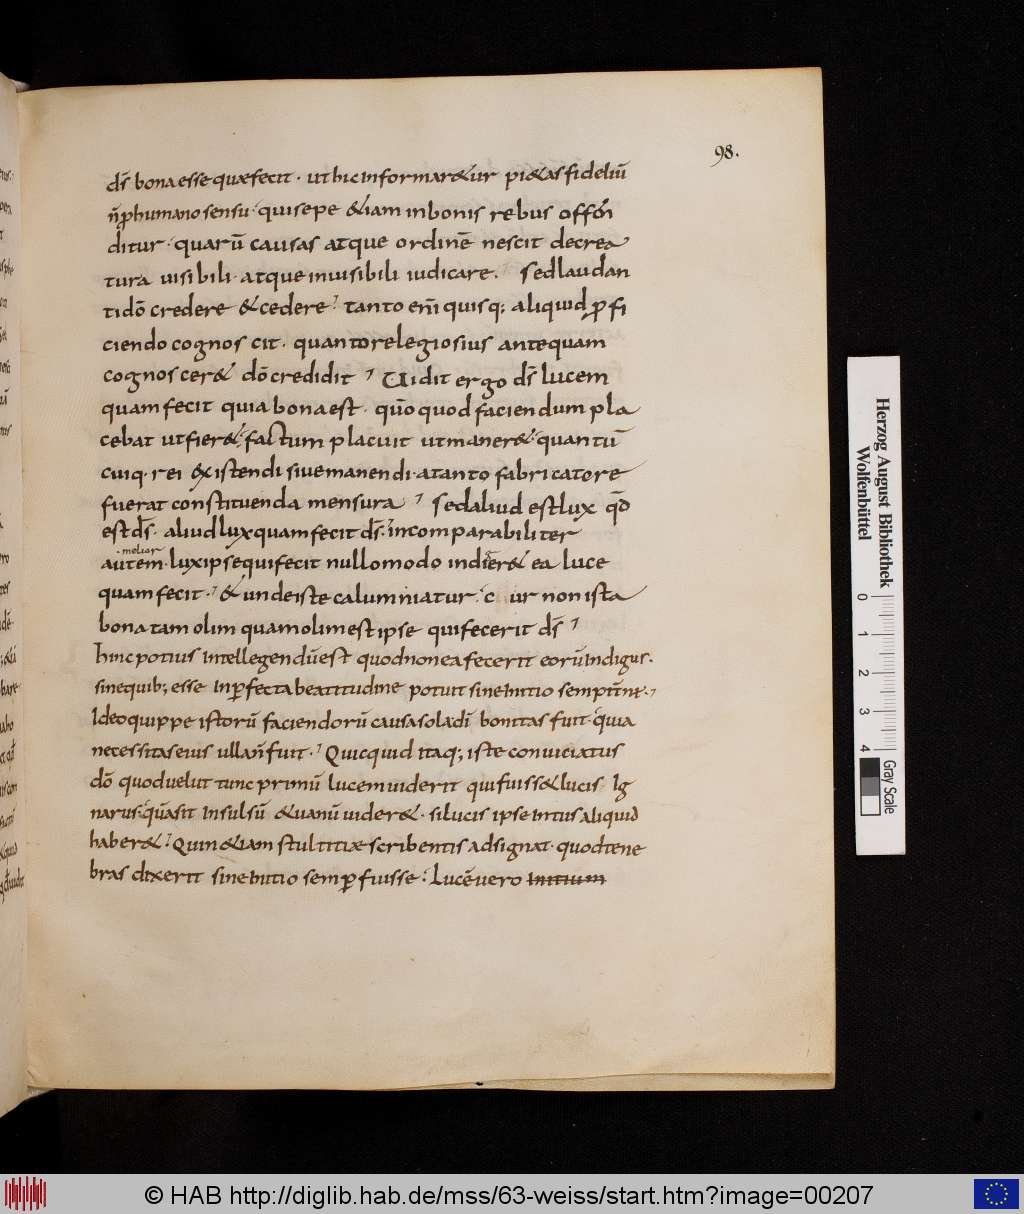 98.
ds̄ bona esse quæ fecit · ut hic informar&ur pi&as fideliū
n̄ p̱ humano sensu · qui sepe &iam in bonis rebus offen
ditur · quarū causas atque ordinē nescit decrea
tura uisibili · atque inuisibili iudicare. sed laudan
ti dō credere & cedere tanto eni̅ quisq; aliquid p̱fi
ciendo cognoscit · quanto relegiosius antequam
cognoscer& dō credidit Uidit ergo ds̄ lucem
quam fecit quia bona est · qūo quod faciendum pla
cebat ut fier& factum placuit ut maner& quantū
cuiq· rei existendi siue manendi · a tanto fabricatore
fuerat constituenda mensura sed aliud est lux qd̄
est ds̄ · aliud lux quam fecit ds̄ · incomparabiliter
· melior
autem · lux ipse qui fecit nullo modo indier& ea luce
quam fecit · & unde iste calumniatur c ur non ista
bona tam olim quam olim est ipse qui fecerit ds̄
hinc potius intellegendū est quod non ea fecerit eorū indigus.
sine quib; esse in p̱fecta beatitudine potuit sine initio
Ideo quippe istorū faciendorū causa sola dī bonitas fuit · quia
necessitas eius ulla n̄ fuit · Quicquid itaq; iste conuiciatus
dō quod uelut tunc primū lucem uiderit qui fuiss& lucis Ig
narus · quasit insulsū & uanū uider& · si lucis ipse intus aliquid
haber& Quin &iam stultitiæ scribentis adsignat · quod tene
bras dixerit sine initio semp̱ fuisse · Lucē uero initium
Herzog August Bibliothek
Wolfenbüttel
0 1 2 3 4
Gray Scale
© HAB http://diglib.hab.de/mss/63-weiss/start.htm?image=00207